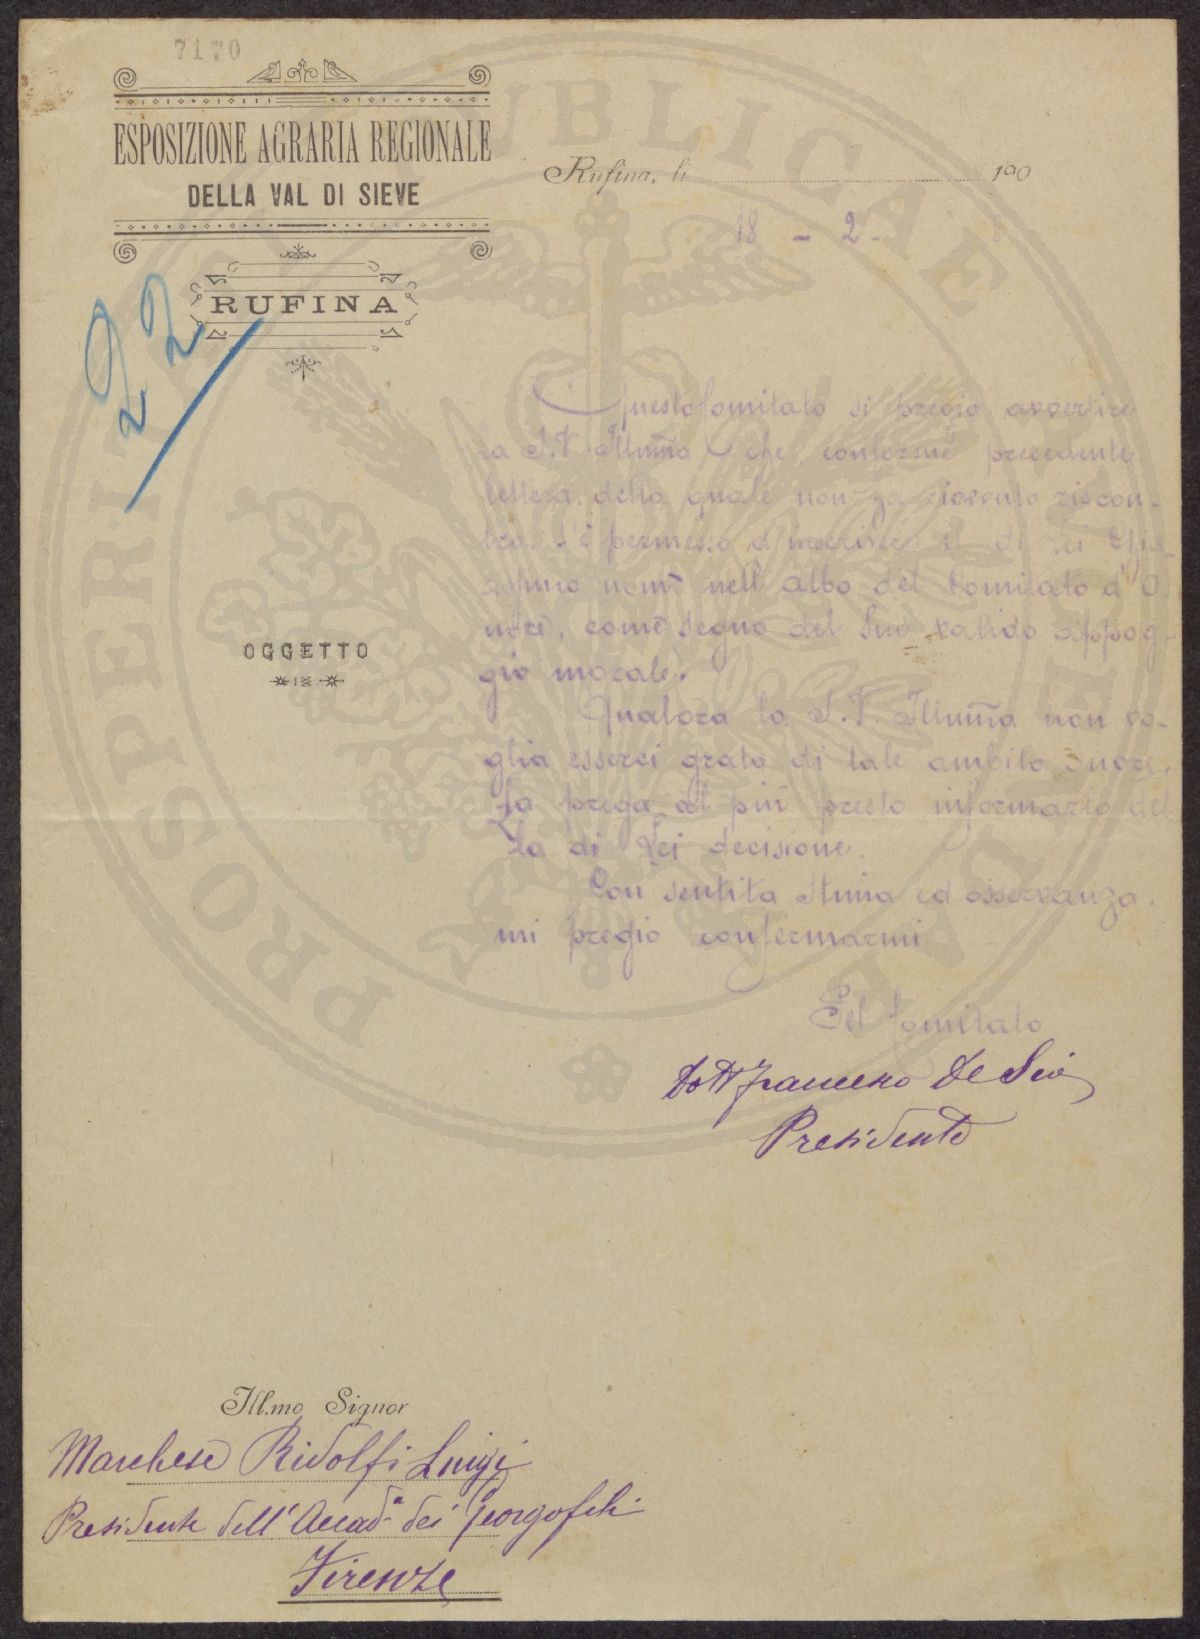 7170
ESPOSIZIONE AGRARIA REGIONALE
DELLA VAL DI SIEVE
RUFINA
Rufina, li 190
18 - 2 - 8
22
Questo Comitato si pregia avvertire
la S.V Illuma che, conforme precedente
lettera, della quale non ha ricevuto riscon-
tro, s'è permesso d'inscrivere il di Lei
nome nell'albo del Comitato d'O-
nore, come segno del Suo valido appog-
gio morale.
OGGETTO
Qualora la S.V. Illuma non vo-
glia esserci grato di tale ambito onore,
La prega al più presto informarlo del
la di Lei decisione.
Con sentita stima ed osservanza
mi pregio confermarmi
Pel Comitato
Dott Francesco De
Presidente
Ill.mo Signor
Marchese Ridolfi Luigi
Presidente dell'Accad.a dei Georgofili
Firenze
PROSPERITATI PUBLICAE AUGENDAE